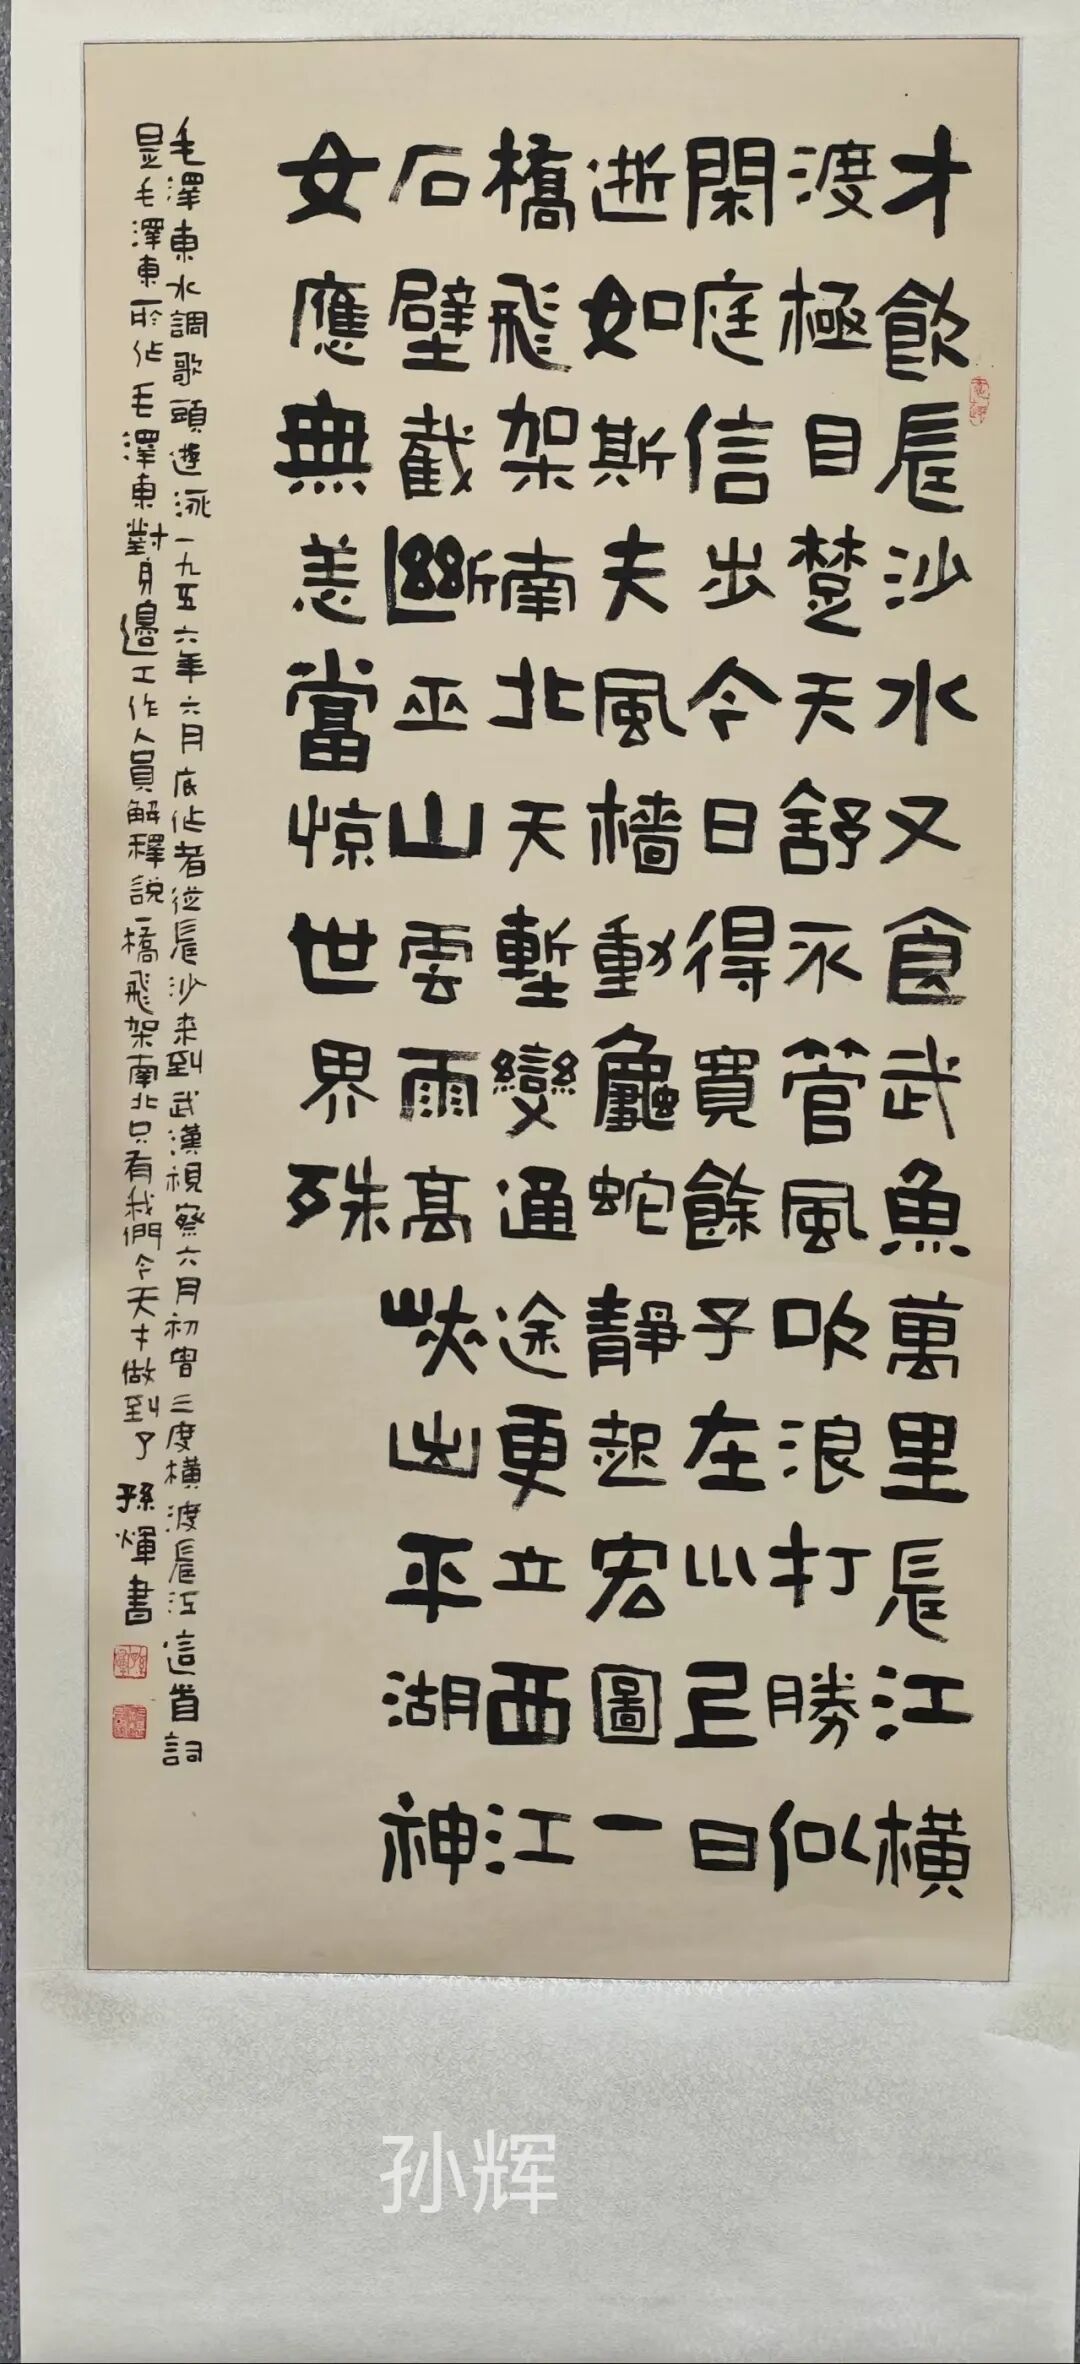 才飲長沙水又食武魚萬里長江橫
渡極目楚天舒不管風吹浪打勝似
閑庭信步今日得寬餘子在川上曰
逝如斯夫風檣動龜蛇靜起宏圖一
橋飛架南北天塹變通途更立西江
石壁截斷巫山雲雨高峽出平湖神
女應無恙當惊世界殊
毛澤東水調歌頭遊泳一九五六年六月底作者從長沙来到武漢視察六月初曾三度橫渡長江這首詞
是毛澤東所作毛澤東對身邊工作人員解釋說一橋飛架南北只有我們今天才做到了孫煇書
孙辉